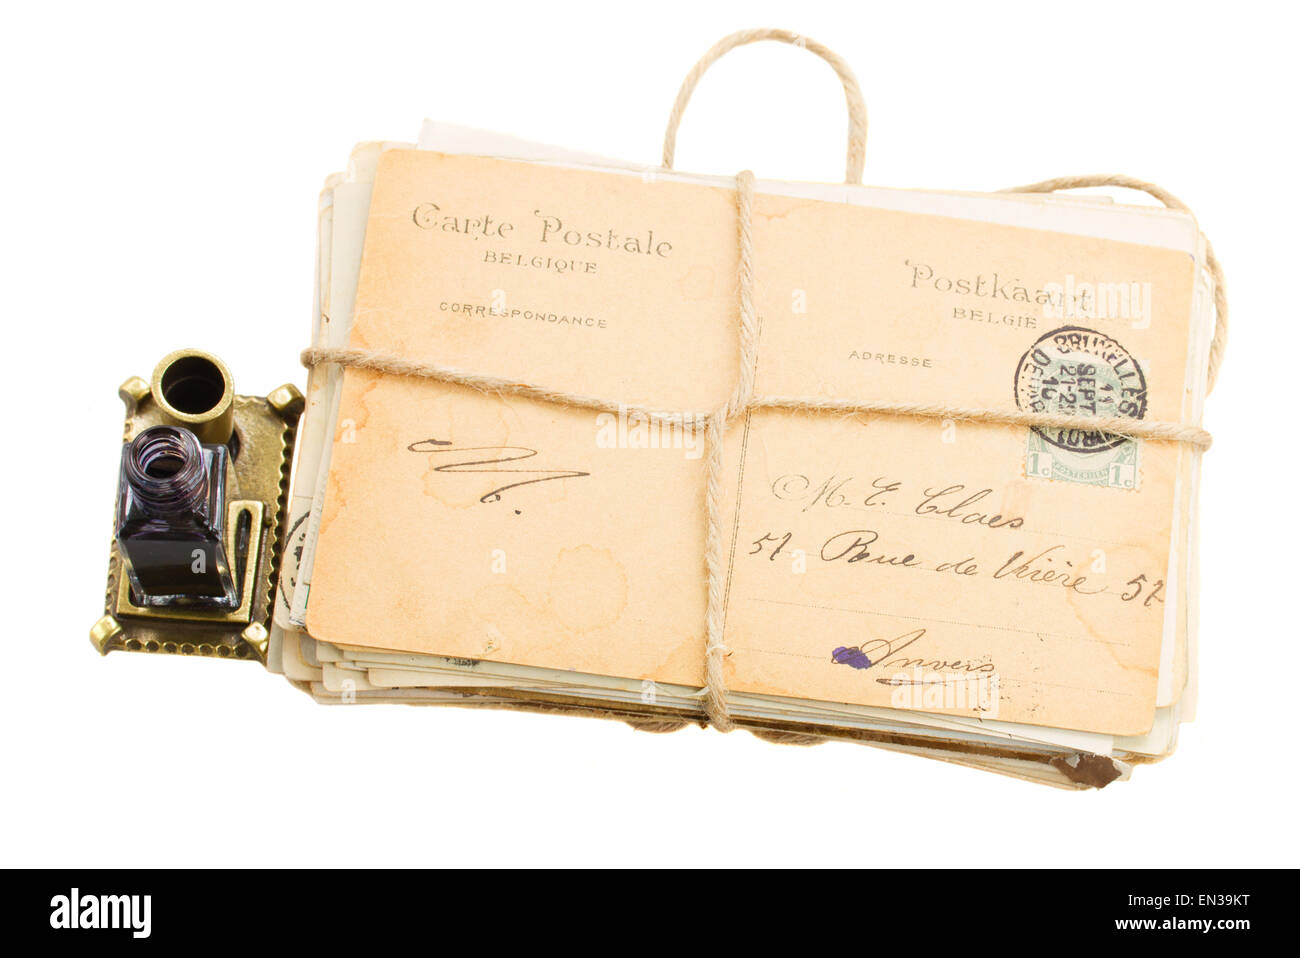 Carte Postale
BELGIQUE
CORRESPONDANCE
Postkaart
BELGIE
ADRESSE
BRUXELLES
11
SEPT
21-2
10
1c POSTERIJEN 1c
M. E. Claes
57 Rue de 57
Anvers
a
alamy
a alamy
Image ID: EN39KT
www.alamy.com